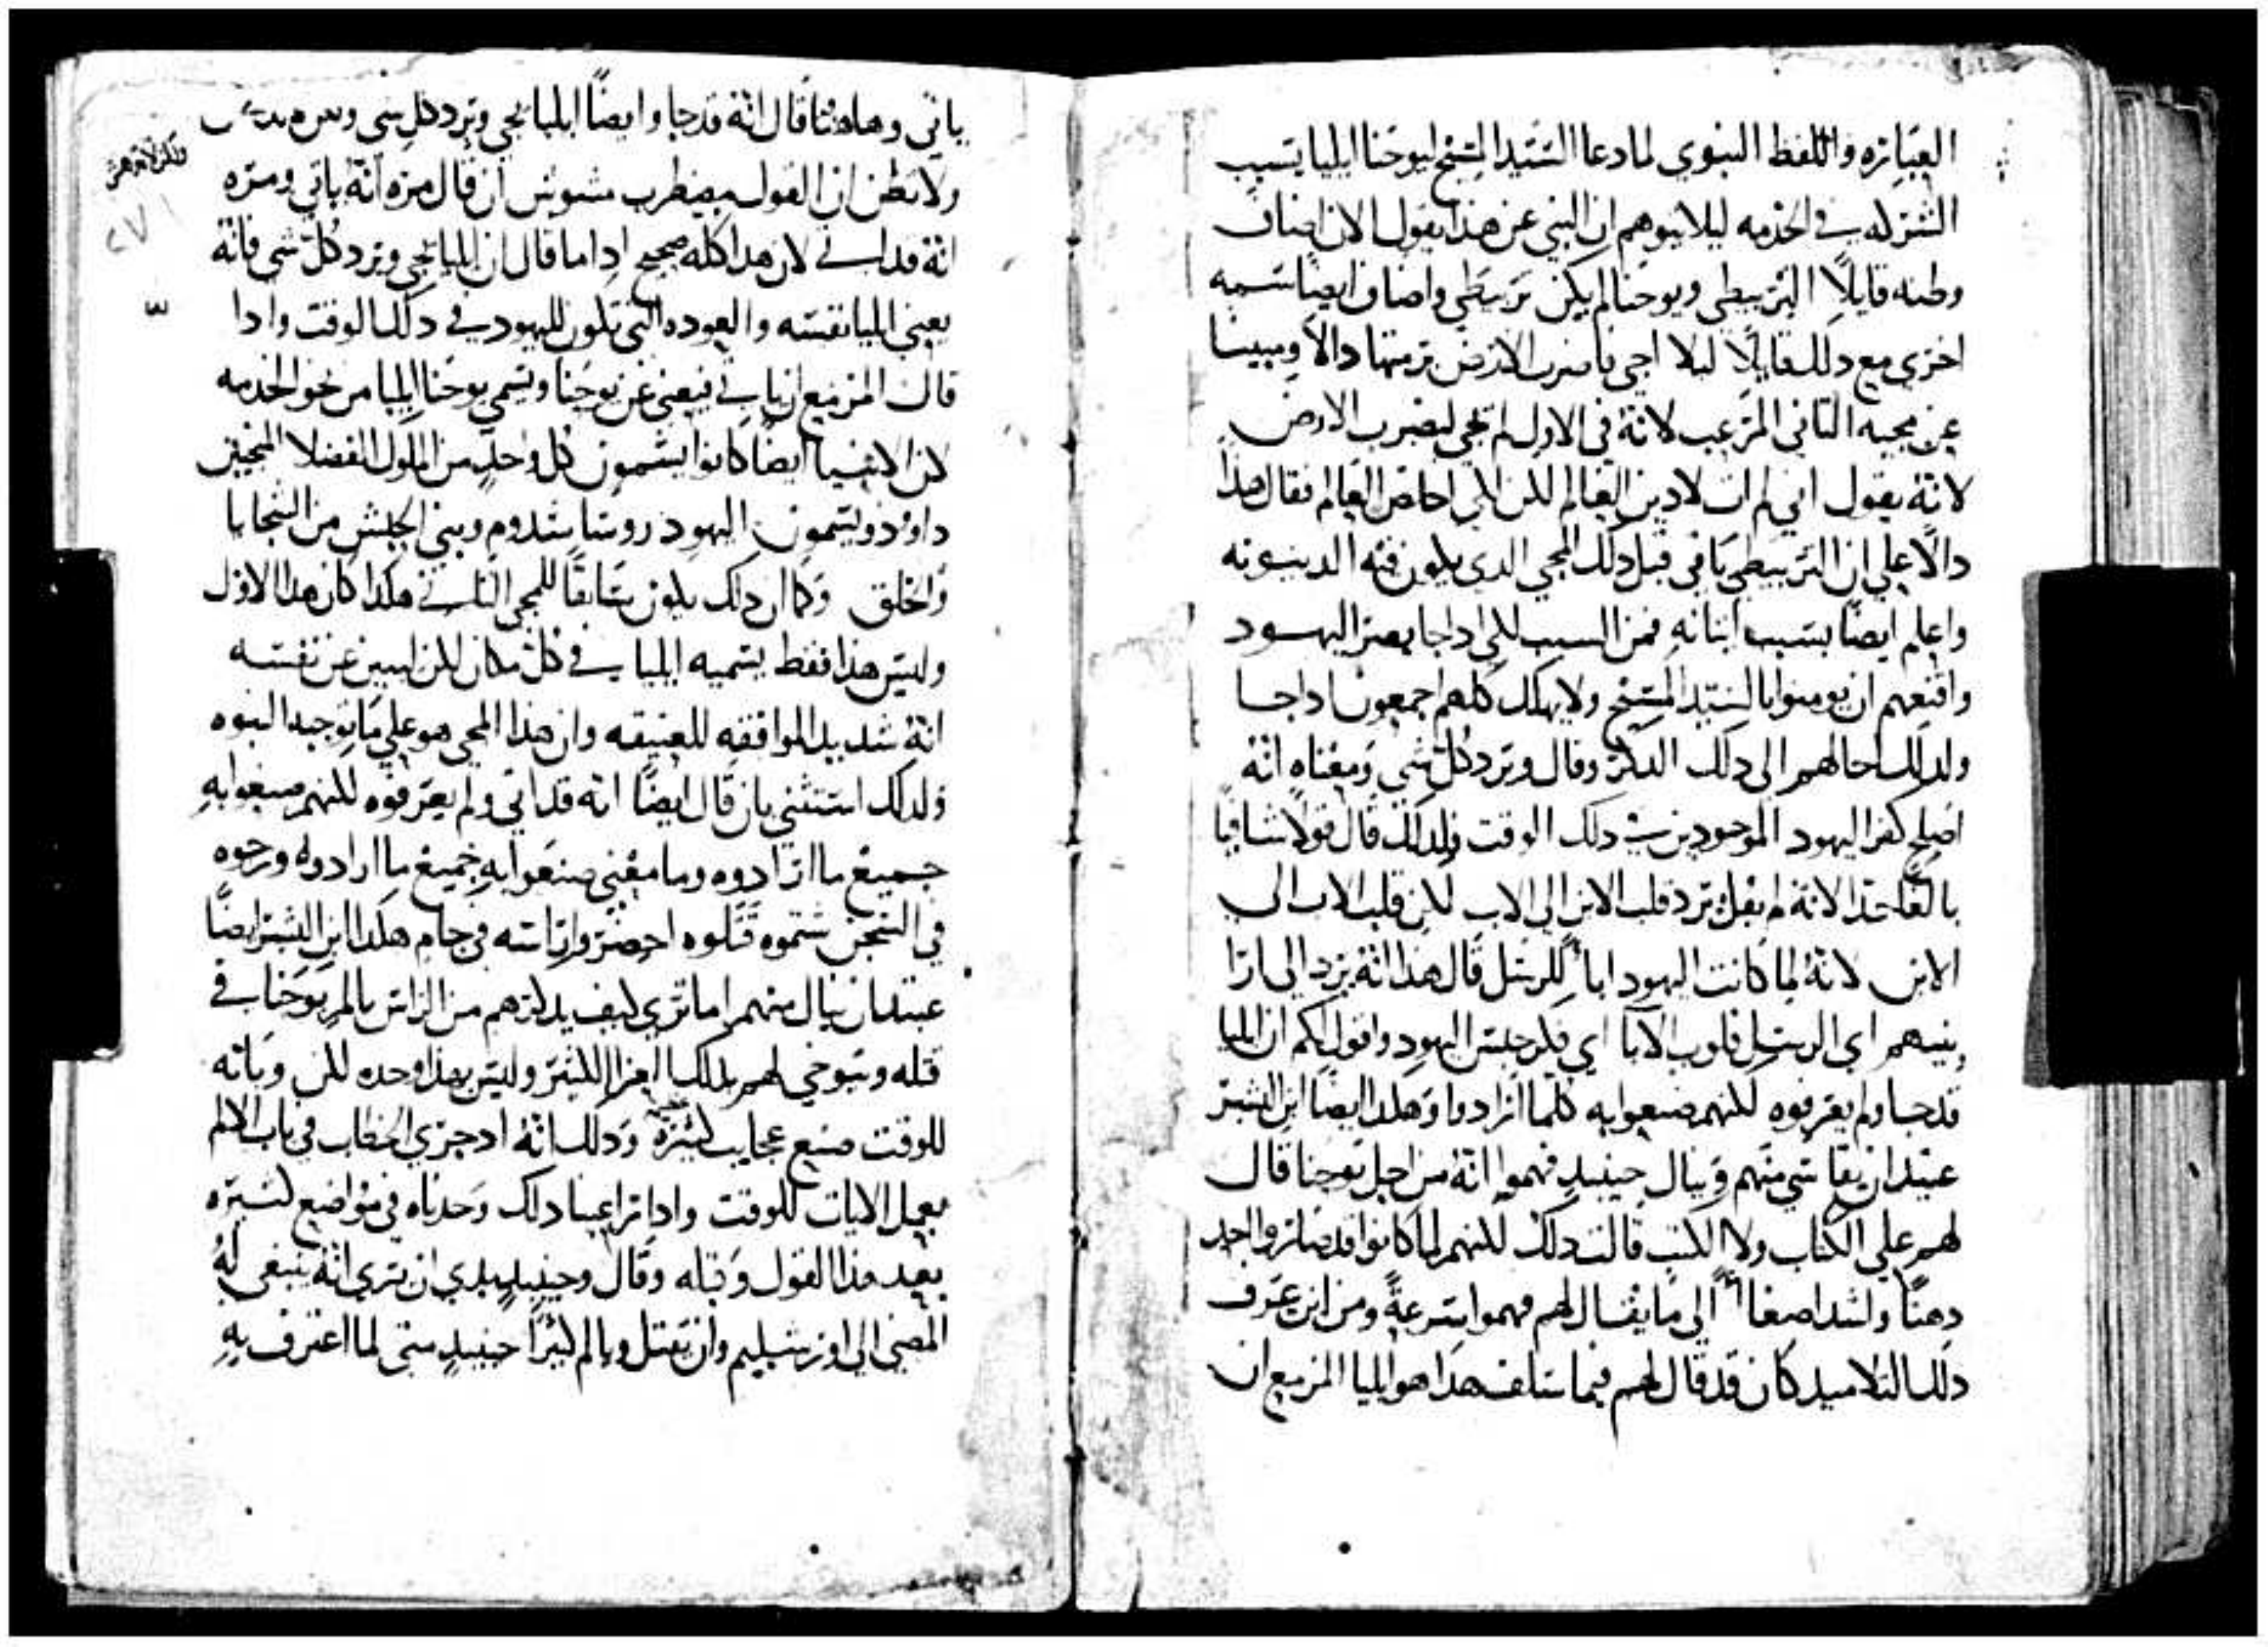 العباره واللفظ النبوي لما دعا السيد المسيح ليوحنا ايليا بسبب
الشركه في الخدمه ليلا يتوهم ان النبي عن هذا يقول الان اضاف
وطنه قايلاً التزبيطي ويوحنا لم يكن تزبيطي واضاف ايضاً سمه
اخري مع دلك قايلاً ليلا اجي فاضرب الارض برمتها دالاً ومبيناً
عن مجيه التاني المرعب لانه في الاول لم يجي ليضرب الارض
لانه يقول اني لم ات لادين العالم لكن لكي اخلص العالم فقال هذا
دالاً علي ان التزبيطي يافي قبل دلك المجي الدي يكون فيه الدينونه
واعلم ايضاً بسبب اتيانه فمن السبب لكي ادا جا يصير اليهود
واقنعهم ان يومنوا بالسيد المسيح ولا يهلك كلهم اجمعون ادا جا
ولدلك احالهم الي دلك الدكر وقال ويرد كل شي ومعناه انه
اصلح كفر اليهود الموجودين في دلك الوقت ولدلك قال قولاً شافياً
بالغاً جداً لانه لم يقل يرد قلب الابن الي الاب لكن قلب الاب الي
الابن لانه لما كانت اليهود ابا للرسل قال هذا انه يرد الي ارا
بنيهم اي الرسل قلوب الابا اي فكر جنس اليهود واقول لكم ان ايليا
قد جا ولم يعرفوه لكنهم صنعوا به كلما ارادوا وهكدا ايضاً ابن البشر
عتيد ان يقاسي منهم وينال حينيد فهموا انه من اجل يوحنا قال
لهم علي ان الكتاب ولا الكتب قالت دلك لكنهم لما كانوا قد صاروا احد
دهناً واشد اصغا الي ما يقال لهم فهموا سرعةً ومن اين عرف
دلك التلاميد كان قد قال لهم فيما سلف هدا هو ايليا المزمع ان
ياتي وهاهنا قال انه قد جا وايضاً ايليا يجي ويرد كل شي
ولا تظن ان القول مضطرب مشوش ان قال مره انه ياتي ومره
انه قد اتي لان هدا كله صحيح ادا ما قال ان ايليا يجي ويرد كل شي فانه
يعني ايليا نفسه والعوده التي تكون لليهود في دلك الوقت وادا
قال المزمع ان ياتي فيعني عن يوحنا ويسمي يوحنا ايليا من نحو الخدمه
لان الانبيا ايضاً كانوا يسمون كل واحدٍ من الملوك الفضلا المنجبين
داوود ويسمون اليهود روسا سدوم وبني الحبش من السجايا
والخلق وكما ان دلك يكون سابقاً للمجي التاني هكدا كان هدا الاول
وليس هذا فقط يسميه ايليا في كل مكان لكن ليبين عن نفسه
انه شديد الموافقه للعتيقه وان هذا المجي هو علي ما توجبه النبوه
ولدلك استتني بان قال ايضاً انه قد اتي ولم يعرفوه لكنهم صنعوا به
جميع ما ارادوه وما معني صنعوا به جميع ما ارادوه طرحوه
في السجن شتموه قتلوه احضروا راسه في جام هكدا ابن البشر ايضاً
عتيد ان ينال منهم اما تري كيف يدكرهم من الراس بالم يوحنا في
قتله ويوحي لهم بدلك العزا الكثير وليس بهذا وحده لكن وبانه
للوقت صنع عجايب كثيرة ودلك انه ادا جري الخطاب في باب الالم
يعمل الايات للوقت وادا راعينا دلك وجدناه في مواضع كثيره
بعد هذا القول وقبله وقال وحينيدٍ بدي ان يري انه ينبغي له
المضي الي اورشليم وان يقتل ويالم كثيراً حينيدٍ متي لما اعترف به
٢٧١